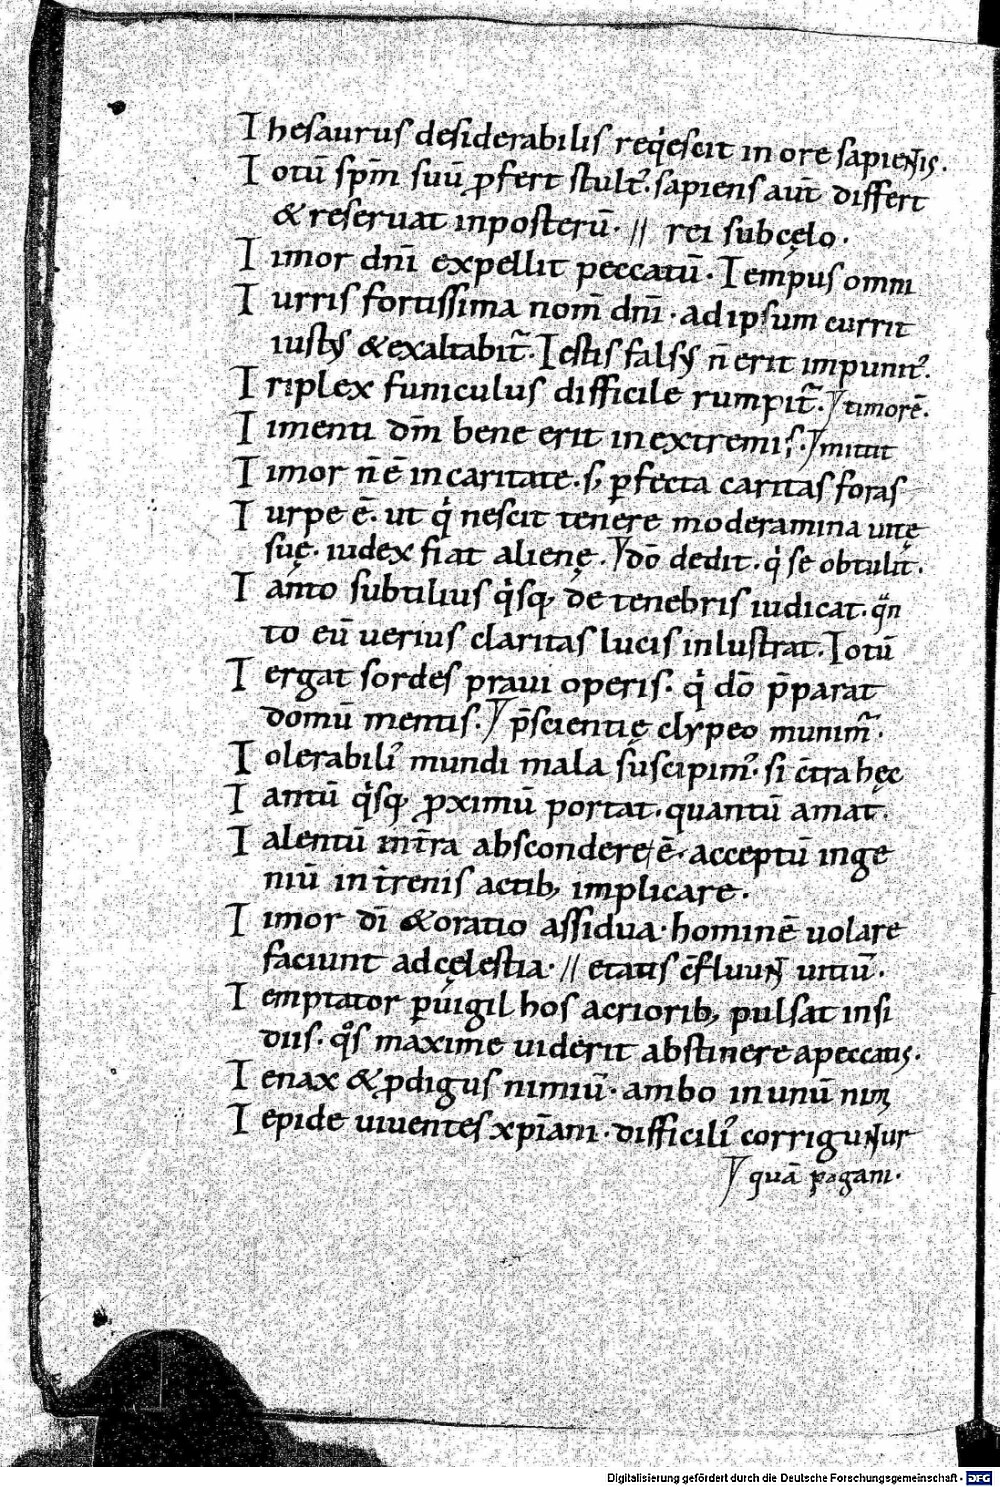 Thesaurus desiderabilis reqͥescit in ore sapientis.
Totū sp̄m suū ꝓfert stultꝰ. sapiens aut̄ differt
& reseruat inposterū. // rei sub cęlo.
Timor dn̄i expellit peccatū. Tempus omni
Turris fortissima nom̄ dn̄i. ad ipsum currit
iustus & exaltabit̄. Testis falsus n̄ erit impunitꝰ.
Triplex funiculus difficile rumpit̄. timorē.
Timenti dm̄ bene erit in extremis. mittit
Timor n̄ ē in caritate. s; ꝑfecta caritas foras
Turpe ē. ut qͥ nescit tenere moderamina uitę
suę. iudex fiat alienę. dō dedit. qͥ se obtulit.
Tanto subtilius qͥsq; de tenebris iudicat. qͣn
to eū uerius claritas lucis inlustrat. Totū
Tergat sordes praui operis. qͥ dō p̄parat
domū mentis. p̄scientię clypeo munim̄.
Tolerabiliꝰ mundi mala suscipimꝰ. si c̄tra hęc
Tantū qͥsq; ꝓximū portat. quantū amat.
Talentū in t̄ra abscondere ē. acceptū inge
niū in t̄renis actib; implicare.
Timor dī & oratio assidua. hominē uolare
faciunt ad cęlestia. // etatis c̄fluunt uitiū.
Temptator ꝑuigil hos acriorib; pulsat insi
diis. qͦs maxime uiderit abstinere a peccatis.
Tenax & ꝓdigus nimiū. ambo in unū nim
Tepide uiuentes xp̄iani. difficiliꝰ corriguntur
quā pagani.
Digitalisierung gefördert durch die Deutsche Forschungsgemeinschaft - DFG